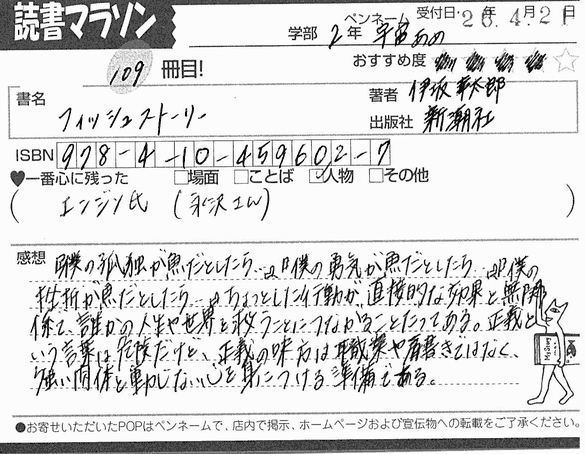 読書マラソン
学部 2年 ペンネーム 宇宙あめ 受付日・20年4月21
109 冊目!
おすすめ度
書名 フィッシュストーリー
著者 伊坂幸太郎
出版社 新潮社
ISBN 978-4-10-459602-7
♥一番心に残った □場面 □ことば ☑人物 □その他
( エンジン氏 (永沢さん) )
感想 『僕の孤独が魚だとしたら…』『僕の勇気が魚だとしたら…』『僕の
挫折が魚だとしたら…』ちょっとした行動が、直接的な効果と無関
係で、誰かの人生や世界を救うことにつながることだってある。正義と
いう言葉は危険だけど、正義の味方は職業や肩書きではなく、
強い肉体と動じない心を身につける準備である。
●お寄せいただいたPOPはペンネームで、店内で掲示、ホームページおよび宣伝物への転載をご了承ください。